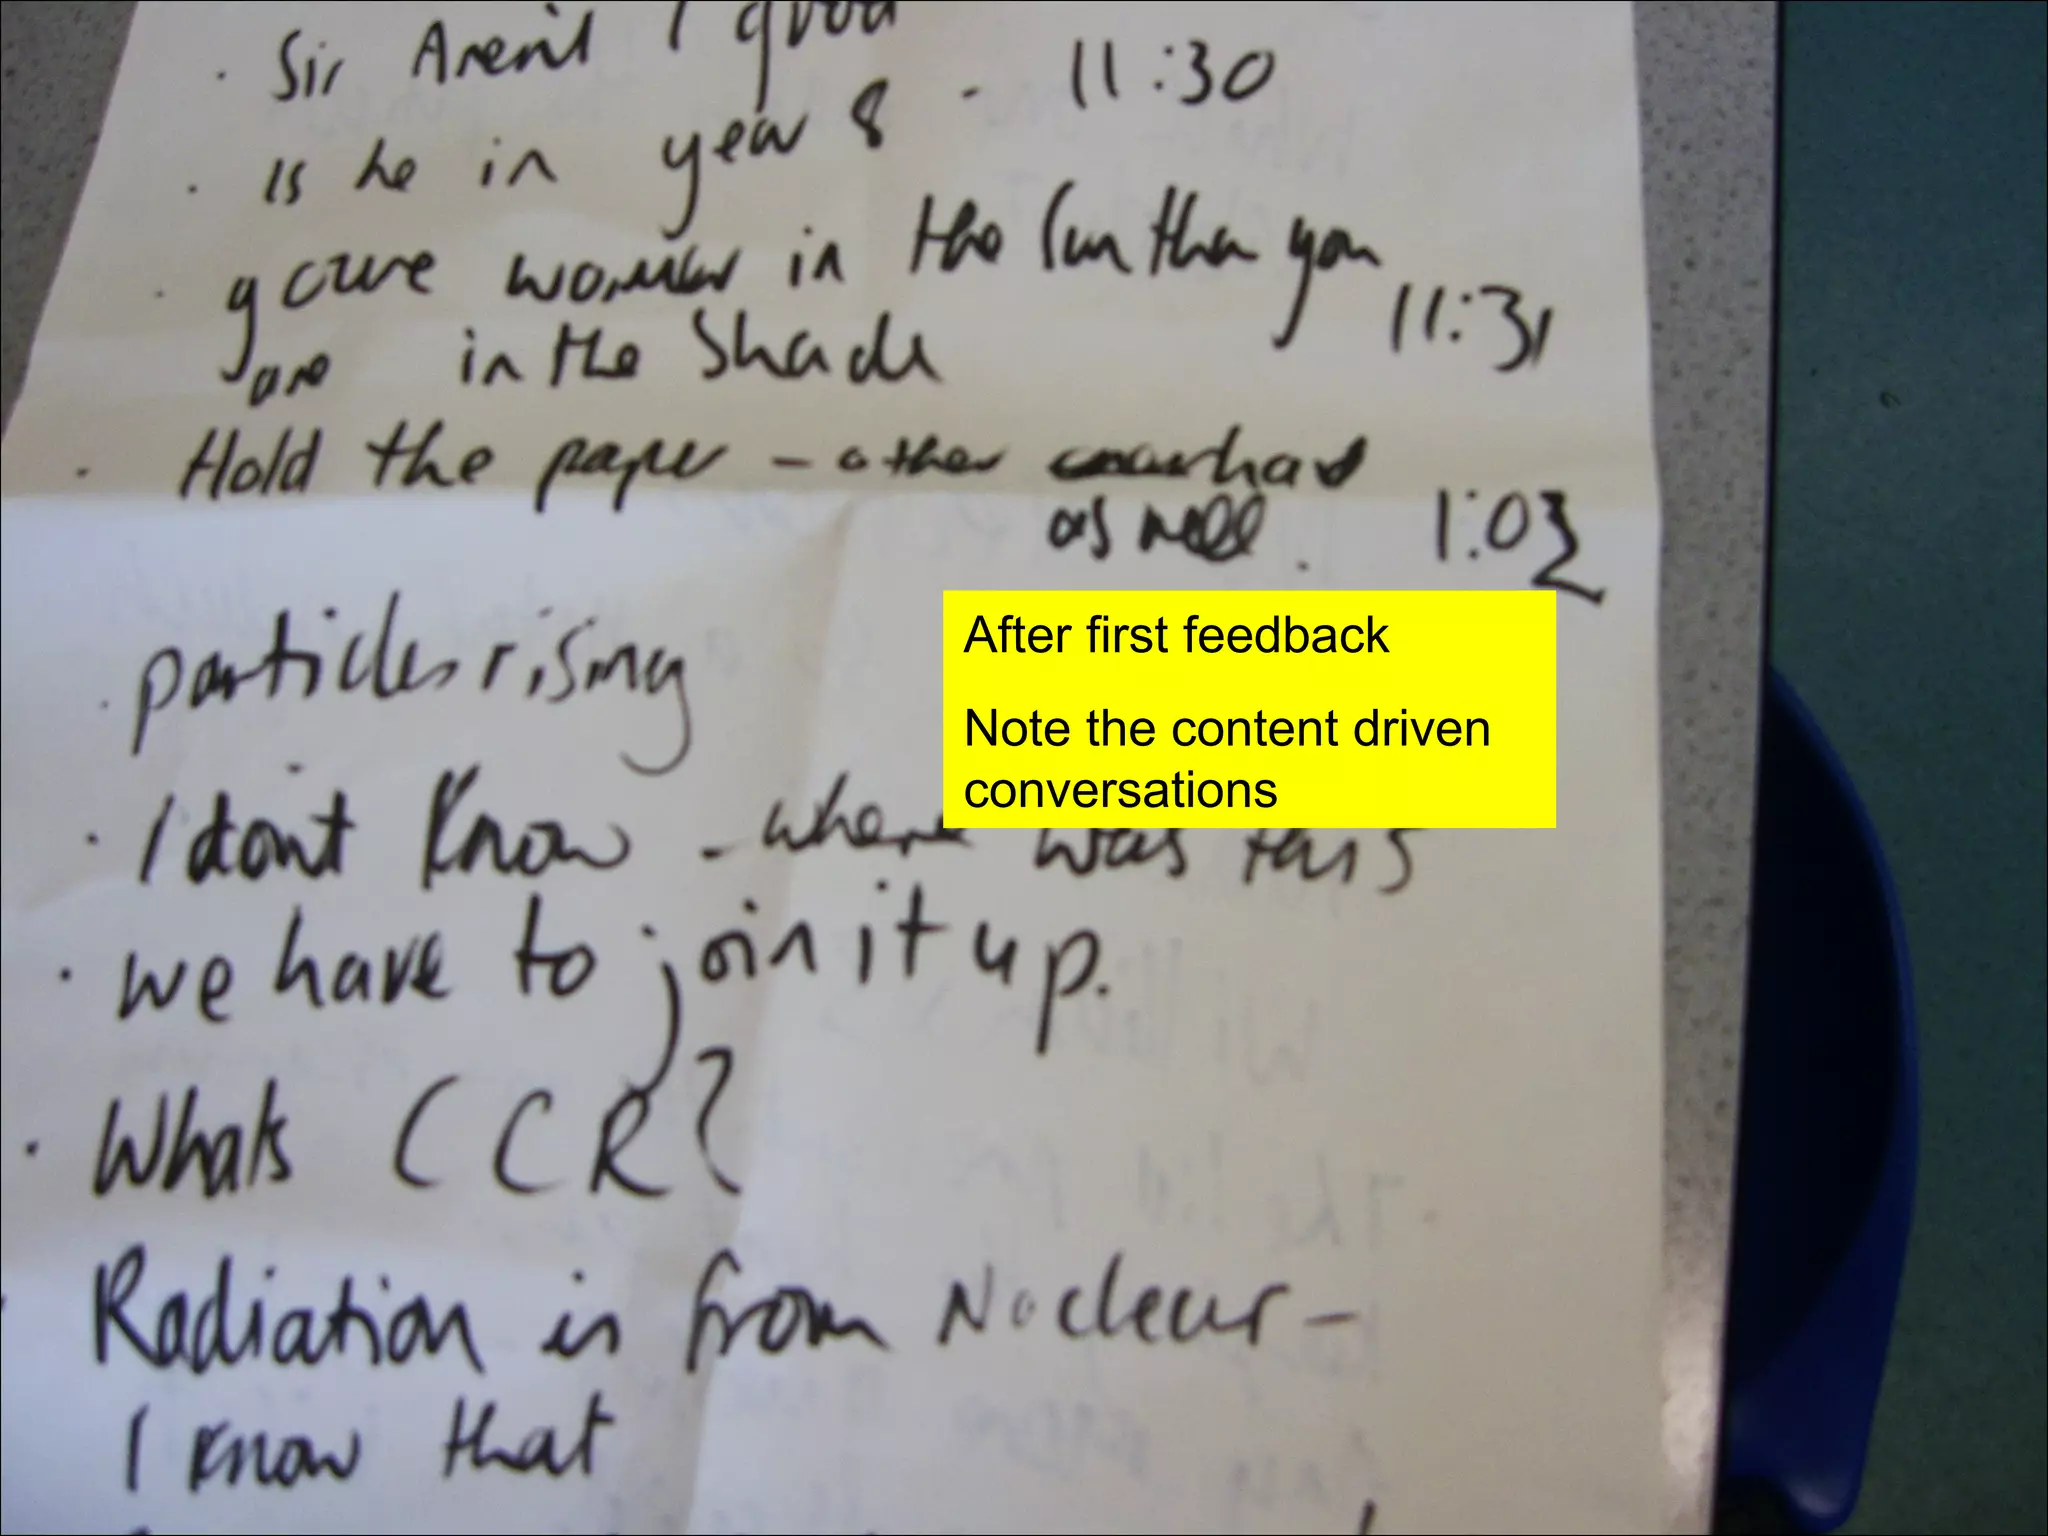 · Sir Aren't I good
· Is he in year 8 - 11:30
· you are warmer in the Sun than you
are in the Shade 11:31
· Hold the paper - other hand
as well. 1:02
After first feedback
Note the content driven
conversations
· particles rising
· I dont Know - where was this
· we have to join it up.
· Whats CCR?
· Radiation is from Nuclear -
I know that